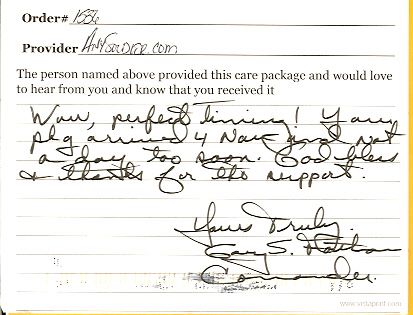 Order# 1556
Provider AnySoldier.com
The person named above provided this care package and would love
to hear from you and know that you received it
Wow, perfect timing! Your
pkg arrived 4 Nov and not
a day too soon. God bless
& thanks for the support.
Yours Truly,
Gary S.
Commander
www.vistaprint.com